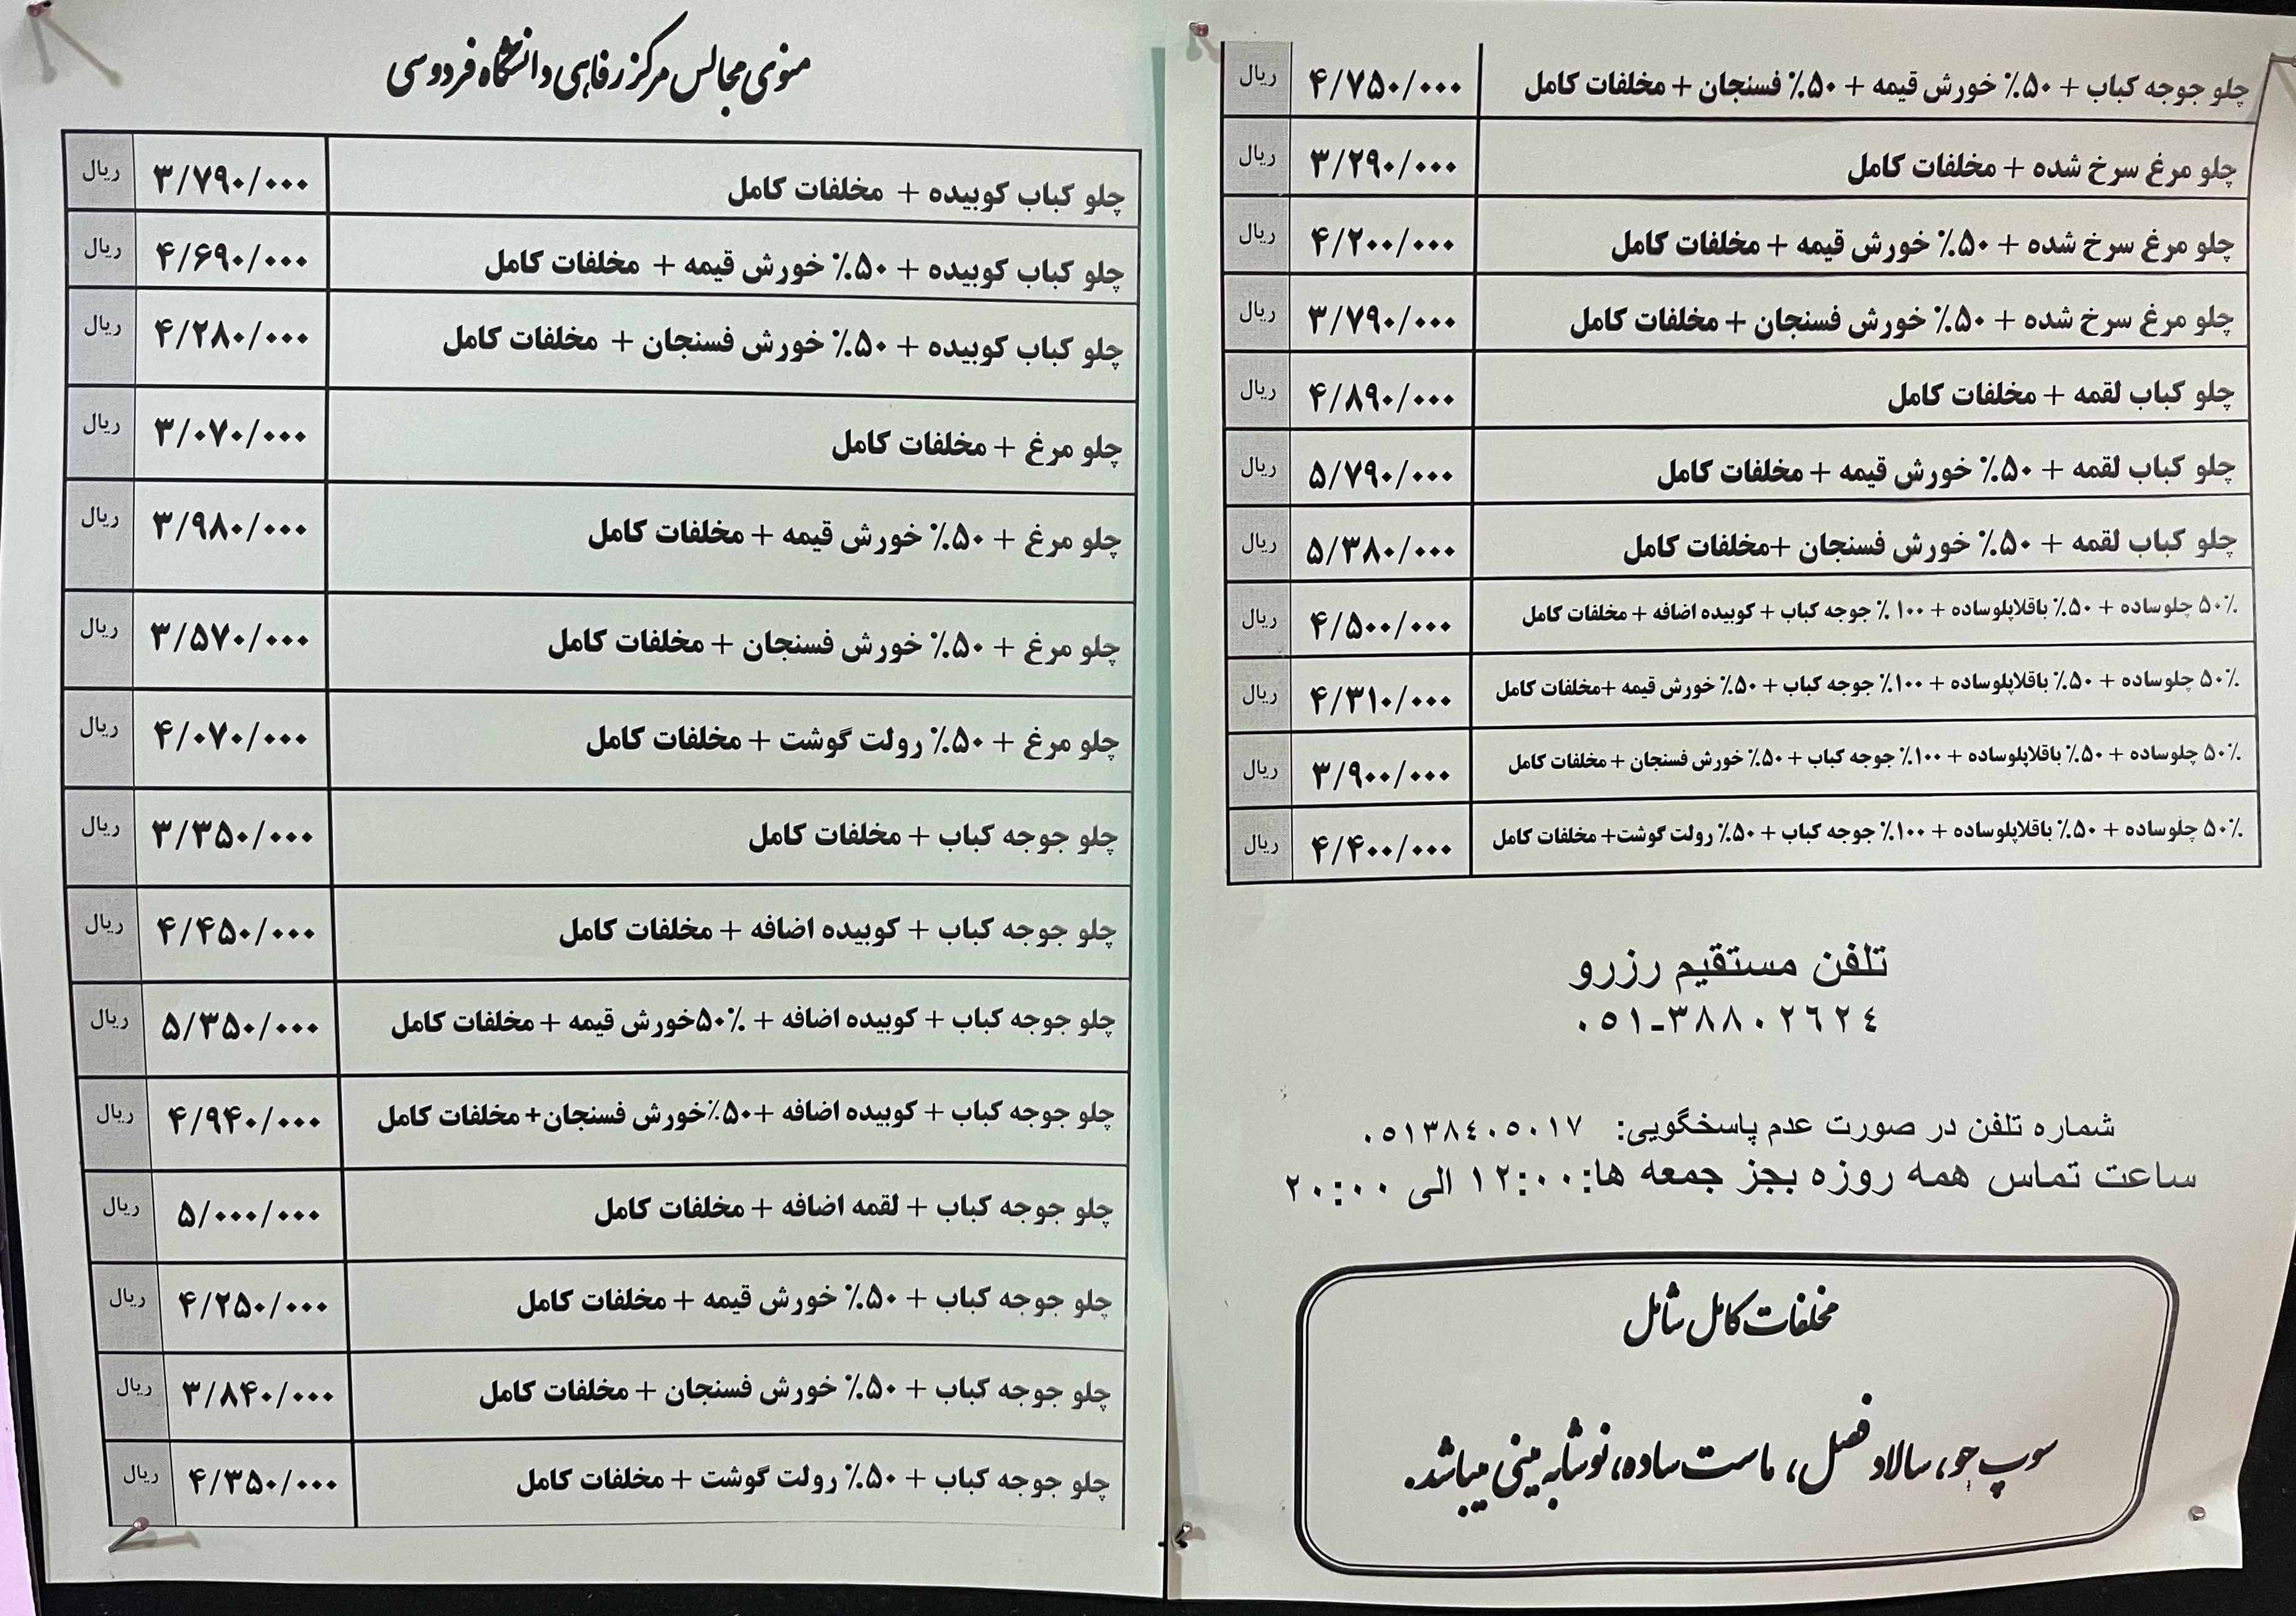 منوی مجالس مرکز رفاهی دانشگاه فردوسی
چلو کباب کوبیده + مخلفات کامل ۳/۷۹۰/۰۰۰ ریال
چلو کباب کوبیده + ۵۰٪ خورش قیمه + مخلفات کامل ۴/۶۹۰/۰۰۰ ریال
چلو کباب کوبیده + ۵۰٪ خورش فسنجان + مخلفات کامل ۴/۲۸۰/۰۰۰ ریال
چلو مرغ + مخلفات کامل ۳/۰۷۰/۰۰۰ ریال
چلو مرغ + ۵۰٪ خورش قیمه + مخلفات کامل ۳/۹۸۰/۰۰۰ ریال
چلو مرغ + ۵۰٪ خورش فسنجان + مخلفات کامل ۳/۵۷۰/۰۰۰ ریال
چلو مرغ + ۵۰٪ رولت گوشت + مخلفات کامل ۴/۰۷۰/۰۰۰ ریال
چلو جوجه کباب + مخلفات کامل ۳/۳۵۰/۰۰۰ ریال
چلو جوجه کباب + کوبیده اضافه + مخلفات کامل ۴/۴۵۰/۰۰۰ ریال
چلو جوجه کباب + کوبیده اضافه + ۵۰٪خورش قیمه + مخلفات کامل ۵/۳۵۰/۰۰۰ ریال
چلو جوجه کباب + کوبیده اضافه +۵۰٪خورش فسنجان+ مخلفات کامل ۴/۹۴۰/۰۰۰ ریال
چلو جوجه کباب + لقمه اضافه + مخلفات کامل ۵/۰۰۰/۰۰۰ ریال
چلو جوجه کباب + ۵۰٪ خورش قیمه + مخلفات کامل ۴/۲۵۰/۰۰۰ ریال
چلو جوجه کباب + ۵۰٪ خورش فسنجان + مخلفات کامل ۳/۸۴۰/۰۰۰ ریال
چلو جوجه کباب + ۵۰٪ رولت گوشت + مخلفات کامل ۴/۳۵۰/۰۰۰ ریال
چلو جوجه کباب + ۵۰٪ خورش قیمه + ۵۰٪ فسنجان + مخلفات کامل ۴/۷۵۰/۰۰۰ ریال
چلو مرغ سرخ شده + مخلفات کامل ۳/۲۹۰/۰۰۰ ریال
چلو مرغ سرخ شده + ۵۰٪ خورش قیمه + مخلفات کامل ۴/۲۰۰/۰۰۰ ریال
چلو مرغ سرخ شده + ۵۰٪ خورش فسنجان + مخلفات کامل ۳/۷۹۰/۰۰۰ ریال
چلو کباب لقمه + مخلفات کامل ۴/۸۹۰/۰۰۰ ریال
چلو کباب لقمه + ۵۰٪ خورش قیمه + مخلفات کامل ۵/۷۹۰/۰۰۰ ریال
چلو کباب لقمه + ۵۰٪ خورش فسنجان +مخلفات کامل ۵/۳۸۰/۰۰۰ ریال
۵۰٪ چلوساده + ۵۰٪ باقلاپلوساده + ۱۰۰ ٪ جوجه کباب + کوبیده اضافه + مخلفات کامل ۴/۵۰۰/۰۰۰ ریال
۵۰٪ چلوساده + ۵۰٪ باقلاپلوساده + ۱۰۰٪ جوجه کباب + ۵۰٪ خورش قیمه +مخلفات کامل ۴/۳۱۰/۰۰۰ ریال
۵۰٪ چلوساده + ۵۰٪ باقلاپلوساده + ۱۰۰٪ جوجه کباب + ۵۰٪ خورش فسنجان + مخلفات کامل ۳/۹۰۰/۰۰۰ ریال
۵۰٪ چلوساده + ۵۰٪ باقلاپلوساده + ۱۰۰٪ جوجه کباب + ۵۰٪ رولت گوشت+ مخلفات کامل ۴/۴۰۰/۰۰۰ ریال
تلفن مستقیم رزرو
۰۵۱-۳۸۸۰۲۶۲۴
شماره تلفن در صورت عدم پاسخگویی: ۰۵۱۳۸۴۰۵۰۱۷
ساعت تماس همه روزه بجز جمعه ها:۱۲:۰۰ الی ۲۰:۰۰
مخلفات کامل شامل
سوپ جو، سالاد فصل، ماست ساده، نوشابه مینی میباشد.